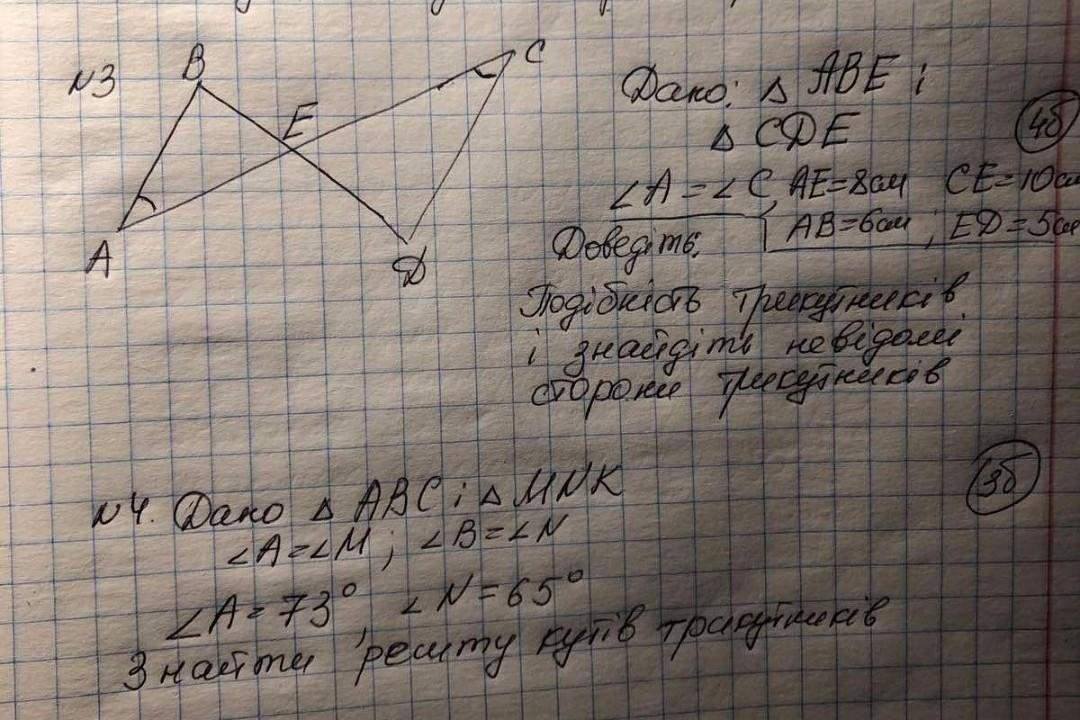 №3
B
C
E
A
D
Дано: △ ABE і
△ CDE
4б
∠A = ∠C, AE=8см CE=10см
AB=6см; ED=5см
Доведіть:
Подібність трикутників
і знайдіть невідомі
сторони трикутників
3б
№4. Дано △ ABC і △ MNK
∠A=∠M; ∠B=∠N
∠A=73°, ∠N=65°
Знайти решту кутів трикутників